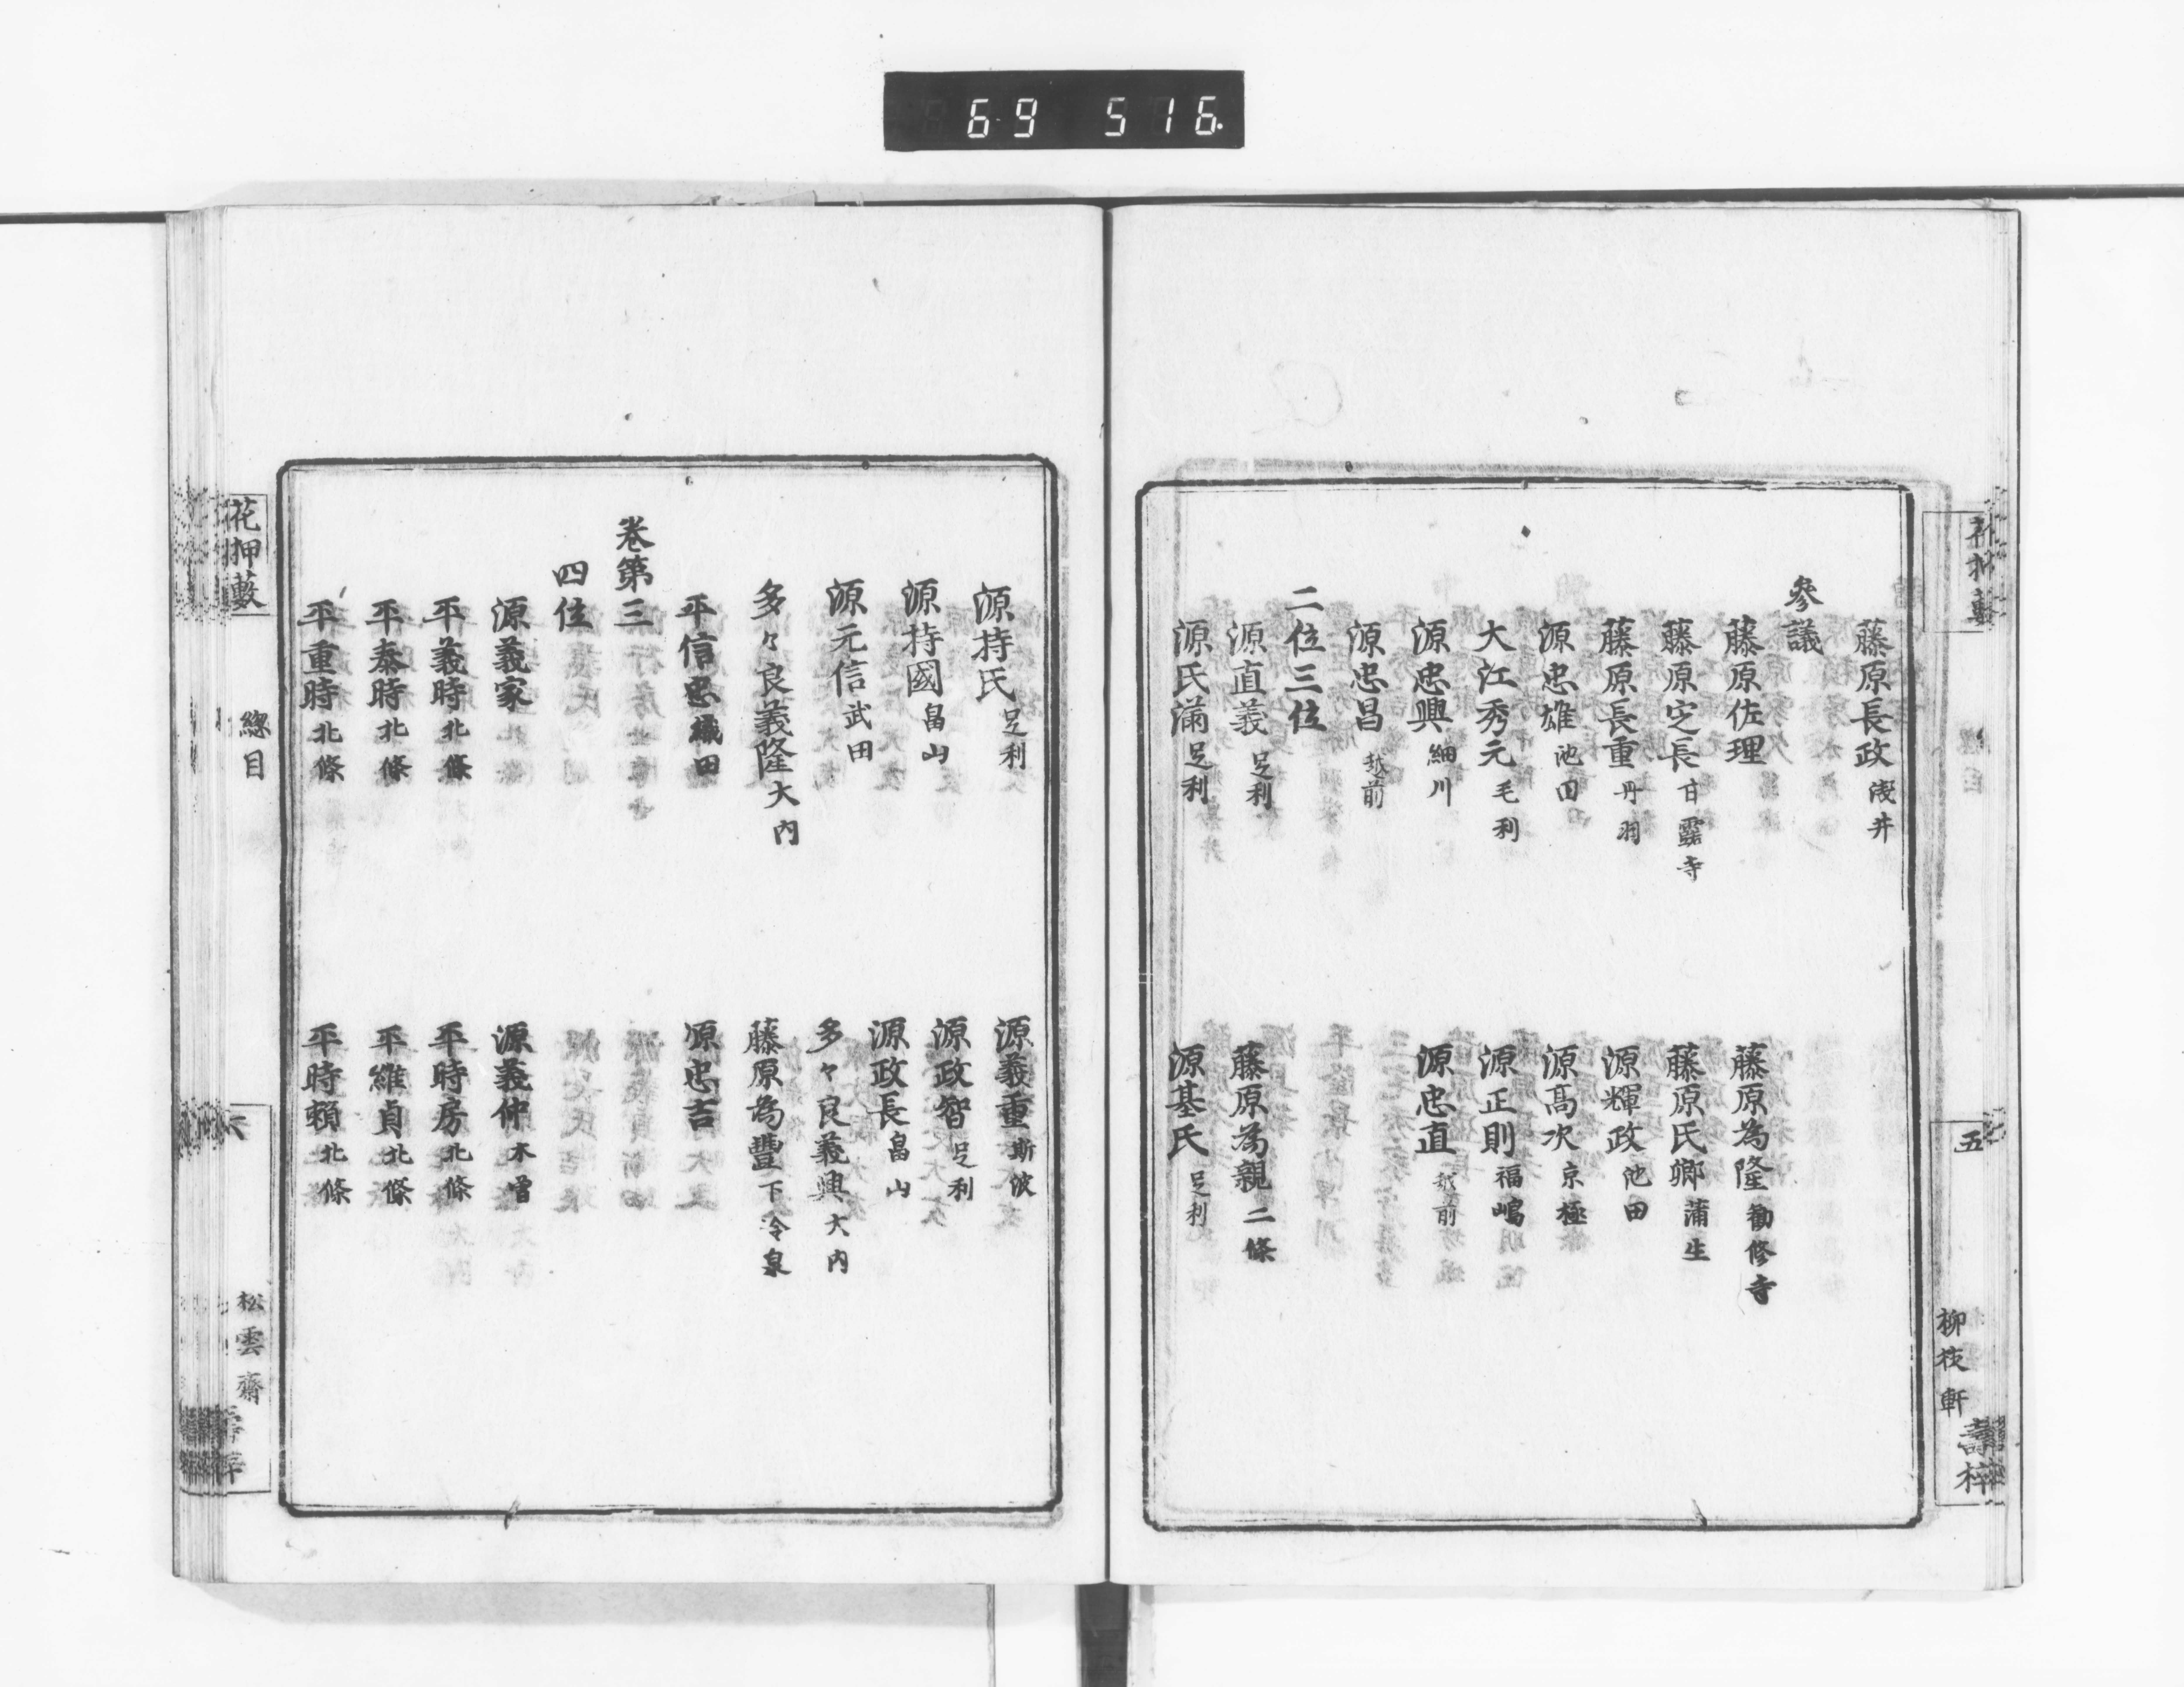 69 516.
藤原長政 浅井
參議
藤原佐理
藤原為隆 勸修寺
藤原定長 甘露寺
藤原氏郷 蒲生
藤原長重 丹羽
源輝政 池田
源忠雄 池田
源髙次 京極
大江秀元 毛利
源正則 福嶋
源忠興 細川
源忠直 越前
源忠昌 越前
二位三位
源直義 足利
藤原為親 二條
源氏滿 足利
源基氏 足利
五
柳枝軒
壽梓
源持氏 足利
源義重 斯波
源持國 畠山
源政智 足利
源政長 畠山
源元信 武田
多々良義興 大内
多々良義隆 大内
藤原為豐 下冷泉
平信忠 織田
源忠吉
卷第三
四位
源義家
源義仲 木曽
平義時 北條
平時房 北條
平泰時 北條
平維貞 北條
平重時 北條
平時頼 北條
花押藪
總目
六
松雲齋